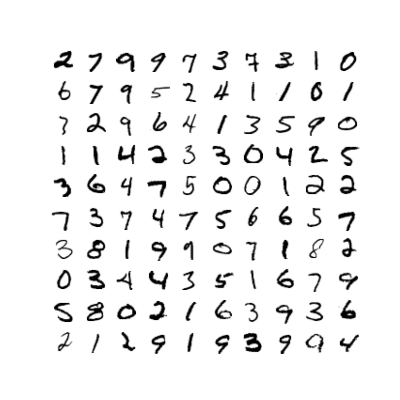 2 7 9 9 7 3 7 3 1 0
6 7 9 5 2 4 1 1 0 1
3 2 9 6 4 1 3 5 9 0
1 1 4 2 3 3 0 4 2 5
3 6 4 7 5 0 0 1 2 2
7 3 7 4 7 5 6 6 5 7
3 8 1 9 9 0 7 1 8 2
0 3 4 4 3 5 1 6 7 9
5 8 0 2 1 6 3 9 3 6
2 1 2 9 1 9 3 9 9 4